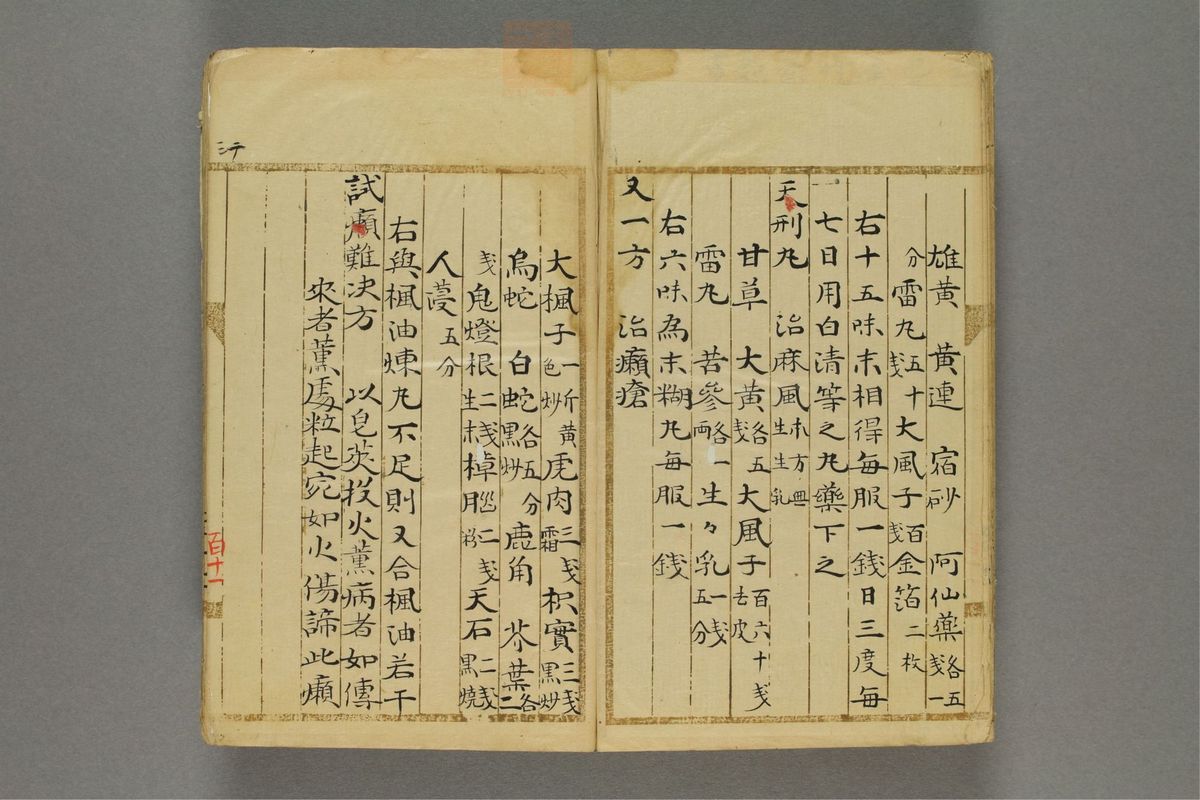 雄黄　黄連　宿砂　阿仙藥各五戔一
分雷丸五十戔大風子百戔金箔二枚
右十五味末相得每服一錢日三度每
七日用白清等之丸藥下之
天刑丸　治麻風本方無生生乳
甘草　大黄各五戔大風子百六十戔去皮
雷丸　苦參各一兩生々乳一戔五分
右六味為末糊丸每服一錢
又一方　治癩瘡
大楓子一斤黄色炒虎肉三戔霜枳實三戔黒炒
烏蛇　白蛇各五分黒炒鹿角　芥葉各二
戔鬼燈根二戔生末樟腦二戔天石二戔黒燒
人薓五分
右與楓油煉丸不足則又合楓油若干
試癩難决方　以皂莢投火薫病者如傳
來者薫處粒起宛如火傷諦此癩
二十
百十一